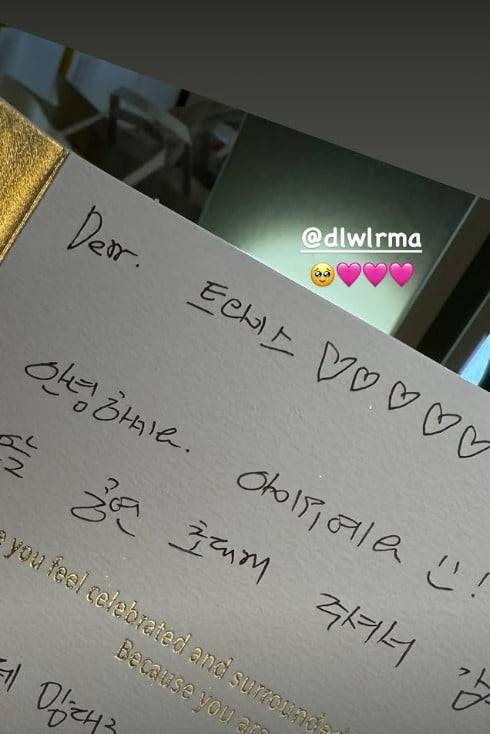 @dlwlrma
🥹🩷🩷🩷
Dear. 트와이스 ♡♡♡♡♡
안녕하세요. 아이유예요 :)!
늘 공연 초대해 주셔서 감
you feel celebrated and surrounded
Because you are